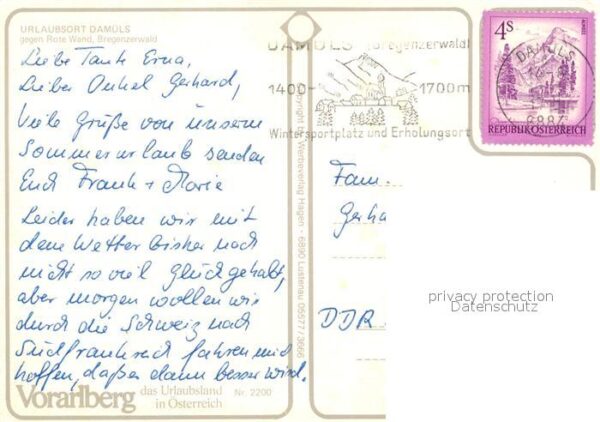 URLAUBSORT DAMÜLS
gegen Rote Wand, Bregenzerwald
Liebe Tante Erna,
Lieber Onkel Gerhard,
Viele Grüße von unserem
Sommerurlaub senden
Euch Frank + Marie
Leider haben wir mit
dem Wetter bisher noch
nicht so viel Glück gehabt,
aber morgen wollen wir
durch die Schweiz nach
Südfrankreich fahren und
hoffen, daß es dann besser wird.
Vorarlberg das Urlaubsland
in Österreich
Nr. 2200
Copyright by Werbeverlag Hagen - 6890 Lustenau 05577/3666
DAMÜLS (Bregenzerwald)
1400- 1700m
Wintersportplatz und Erholungsort
4S
REPUBLIK ÖSTERREICH
DAMÜLS
6884
Fam.
Gerha
DDR
privacy protection
Datenschutz